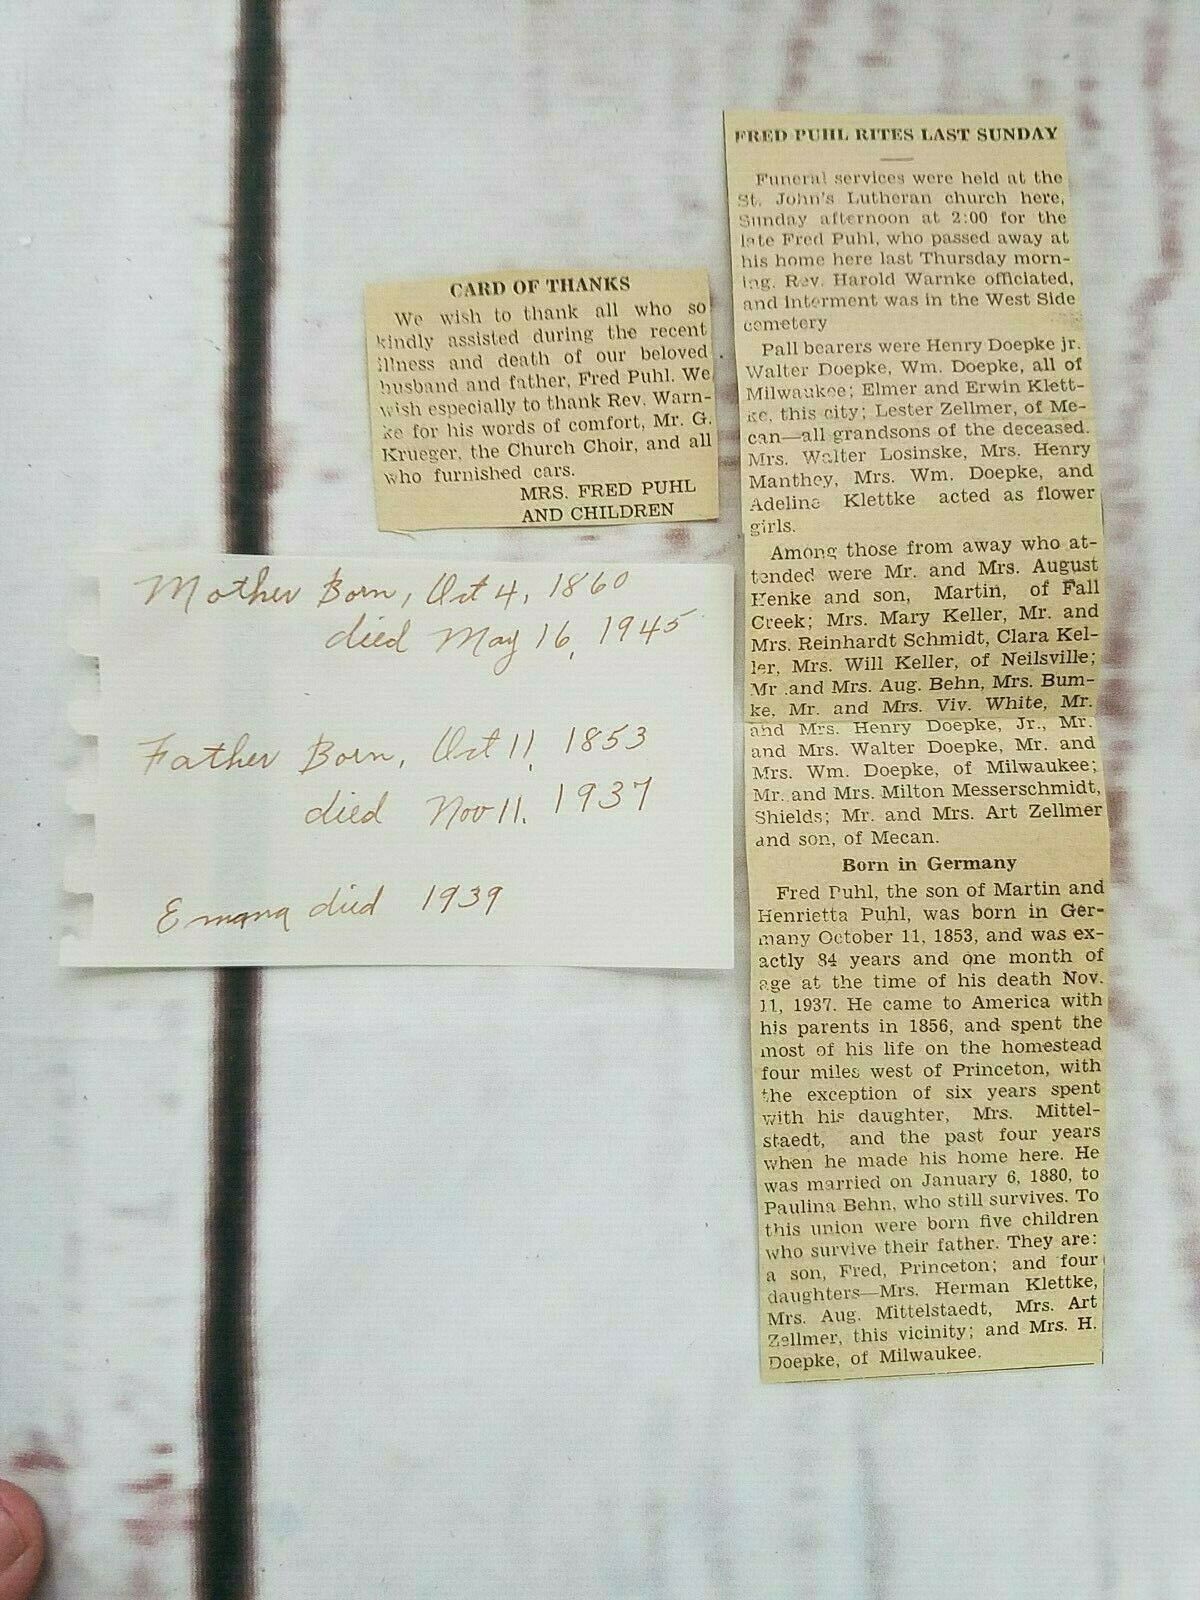 CARD OF THANKS
We wish to thank all who so
kindly assisted during the recent
illness and death of our beloved
husband and father, Fred Puhl. We
wish especially to thank Rev. Warn-
ke for his words of comfort, Mr. G.
Krueger, the Church Choir, and all
who furnished cars.
MRS. FRED PUHL
AND CHILDREN
Mother Born, Oct 4, 1860
died May 16, 1945
Father Born, Oct 11, 1853
died Nov 11, 1937
Emma died 1939
FRED PUHL RITES LAST SUNDAY
Funeral services were held at the
St. John's Lutheran church here,
Sunday afternoon at 2:00 for the
late Fred Puhl, who passed away at
his home here last Thursday morn-
ing. Rev. Harold Warnke officiated,
and interment was in the West Side
cemetery
Pall bearers were Henry Doepke jr.
Walter Doepke, Wm. Doepke, all of
Milwaukee; Elmer and Erwin Klett-
ke, this city; Lester Zellmer, of Me-
can—all grandsons of the deceased.
Mrs. Walter Losinske, Mrs. Henry
Manthey, Mrs. Wm. Doepke, and
Adeline Klettke acted as flower
girls.
Among those from away who at-
tended were Mr. and Mrs. August
Henke and son, Martin, of Fall
Creek; Mrs. Mary Keller, Mr. and
Mrs. Reinhardt Schmidt, Clara Kel-
ler, Mrs. Will Keller, of Neilsville;
Mr .and Mrs. Aug. Behn, Mrs. Bum-
ke, Mr. and Mrs. Viv. White, Mr.
and Mrs. Henry Doepke, Jr., Mr.
and Mrs. Walter Doepke, Mr. and
Mrs. Wm. Doepke, of Milwaukee;
Mr. and Mrs. Milton Messerschmidt,
Shields; Mr. and Mrs. Art Zellmer
and son, of Mecan.
Born in Germany
Fred Puhl, the son of Martin and
Henrietta Puhl, was born in Ger-
many October 11, 1853, and was ex-
actly 84 years and one month of
age at the time of his death Nov.
11, 1937. He came to America with
his parents in 1856, and spent the
most of his life on the homestead
four miles west of Princeton, with
the exception of six years spent
with his daughter, Mrs. Mittel-
staedt, and the past four years
when he made his home here. He
was married on January 6, 1880, to
Paulina Behn, who still survives. To
this union were born five children
who survive their father. They are:
a son, Fred, Princeton; and four
daughters—Mrs. Herman Klettke,
Mrs. Aug. Mittelstaedt, Mrs. Art
Zellmer, this vicinity; and Mrs. H.
Doepke, of Milwaukee.